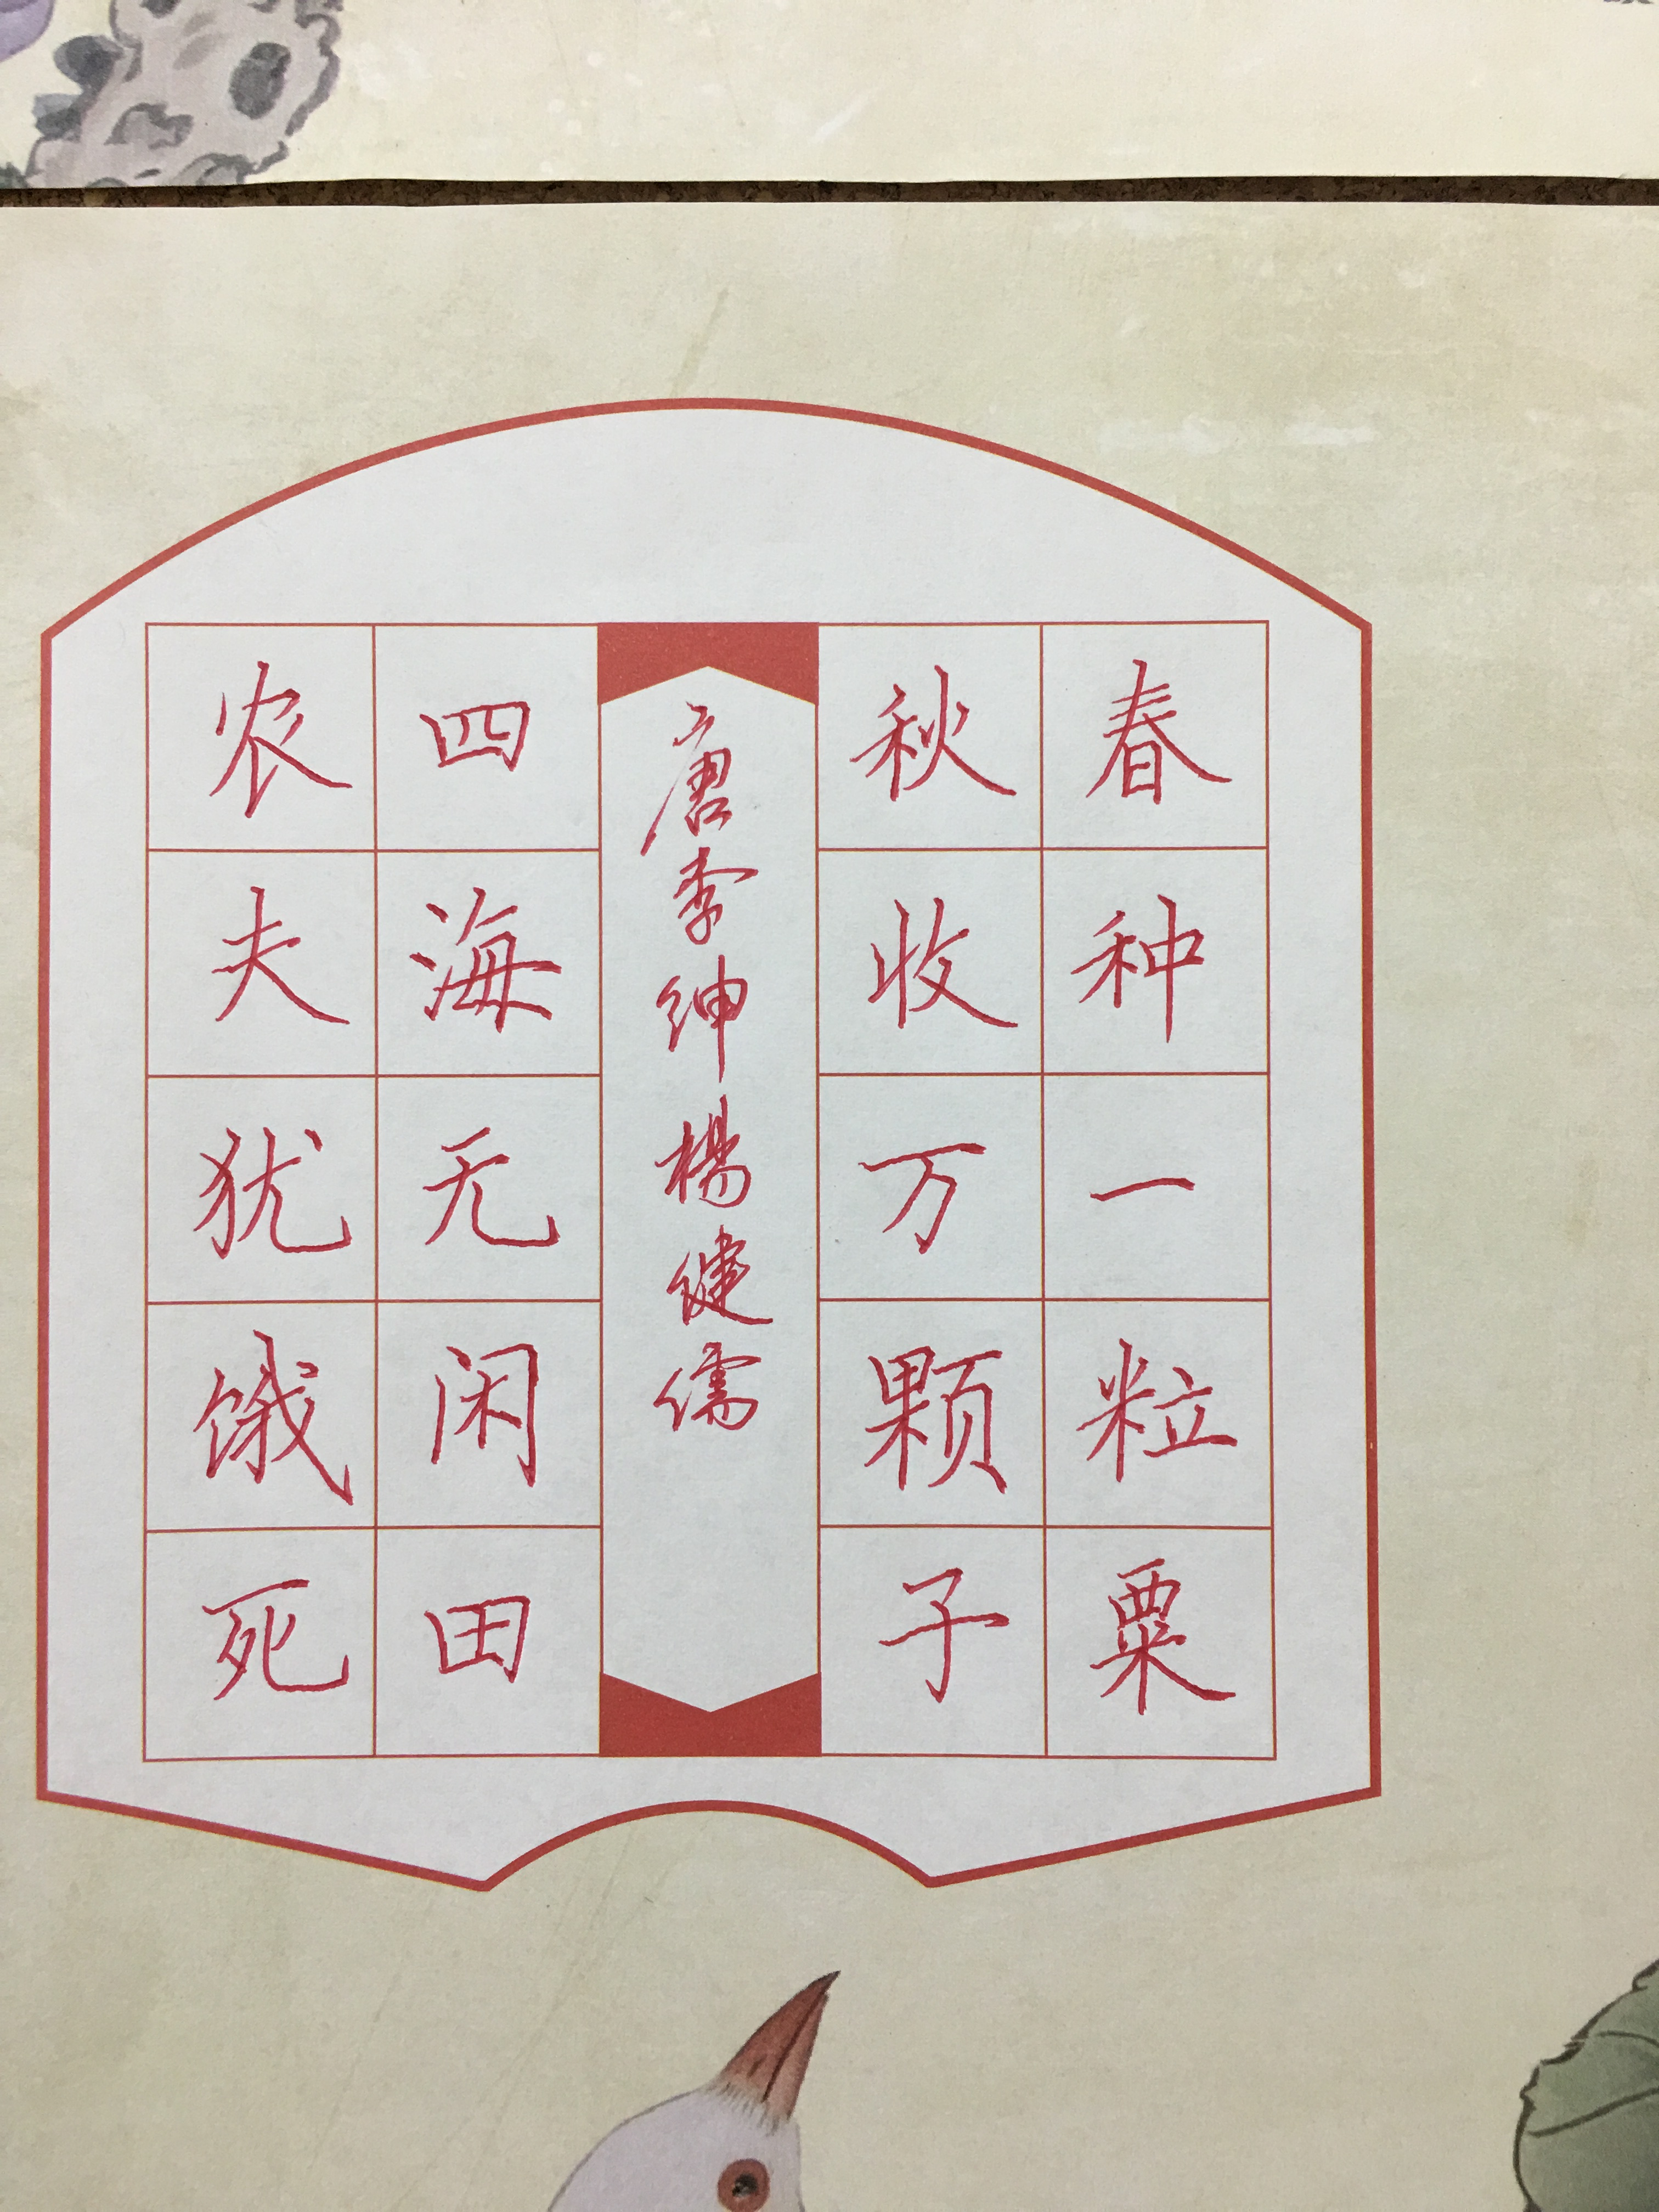 春种一粒粟
秋收万颗子
唐李绅楊健儒
四海无闲田
农夫犹饿死